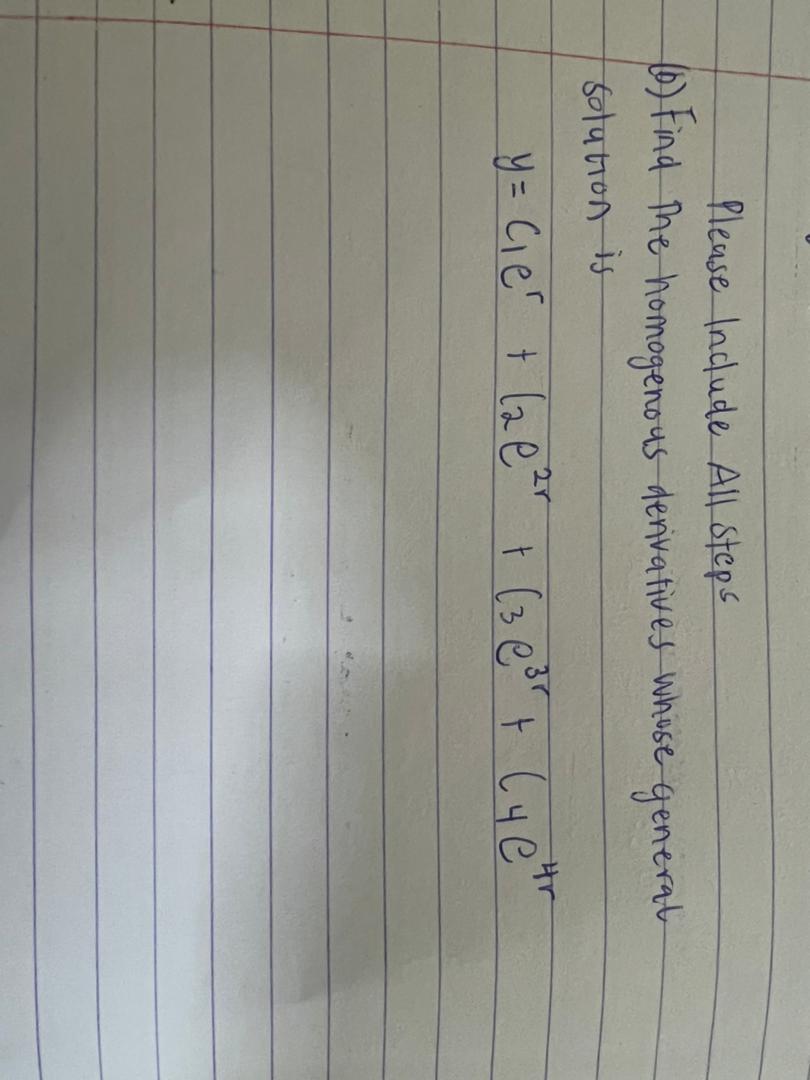 Please Include All steps
(b) Find the homogenous derivatives whose general
solution is
y = C₁eʳ + C₂e²ʳ + C₃e³ʳ + C₄e⁴ʳ